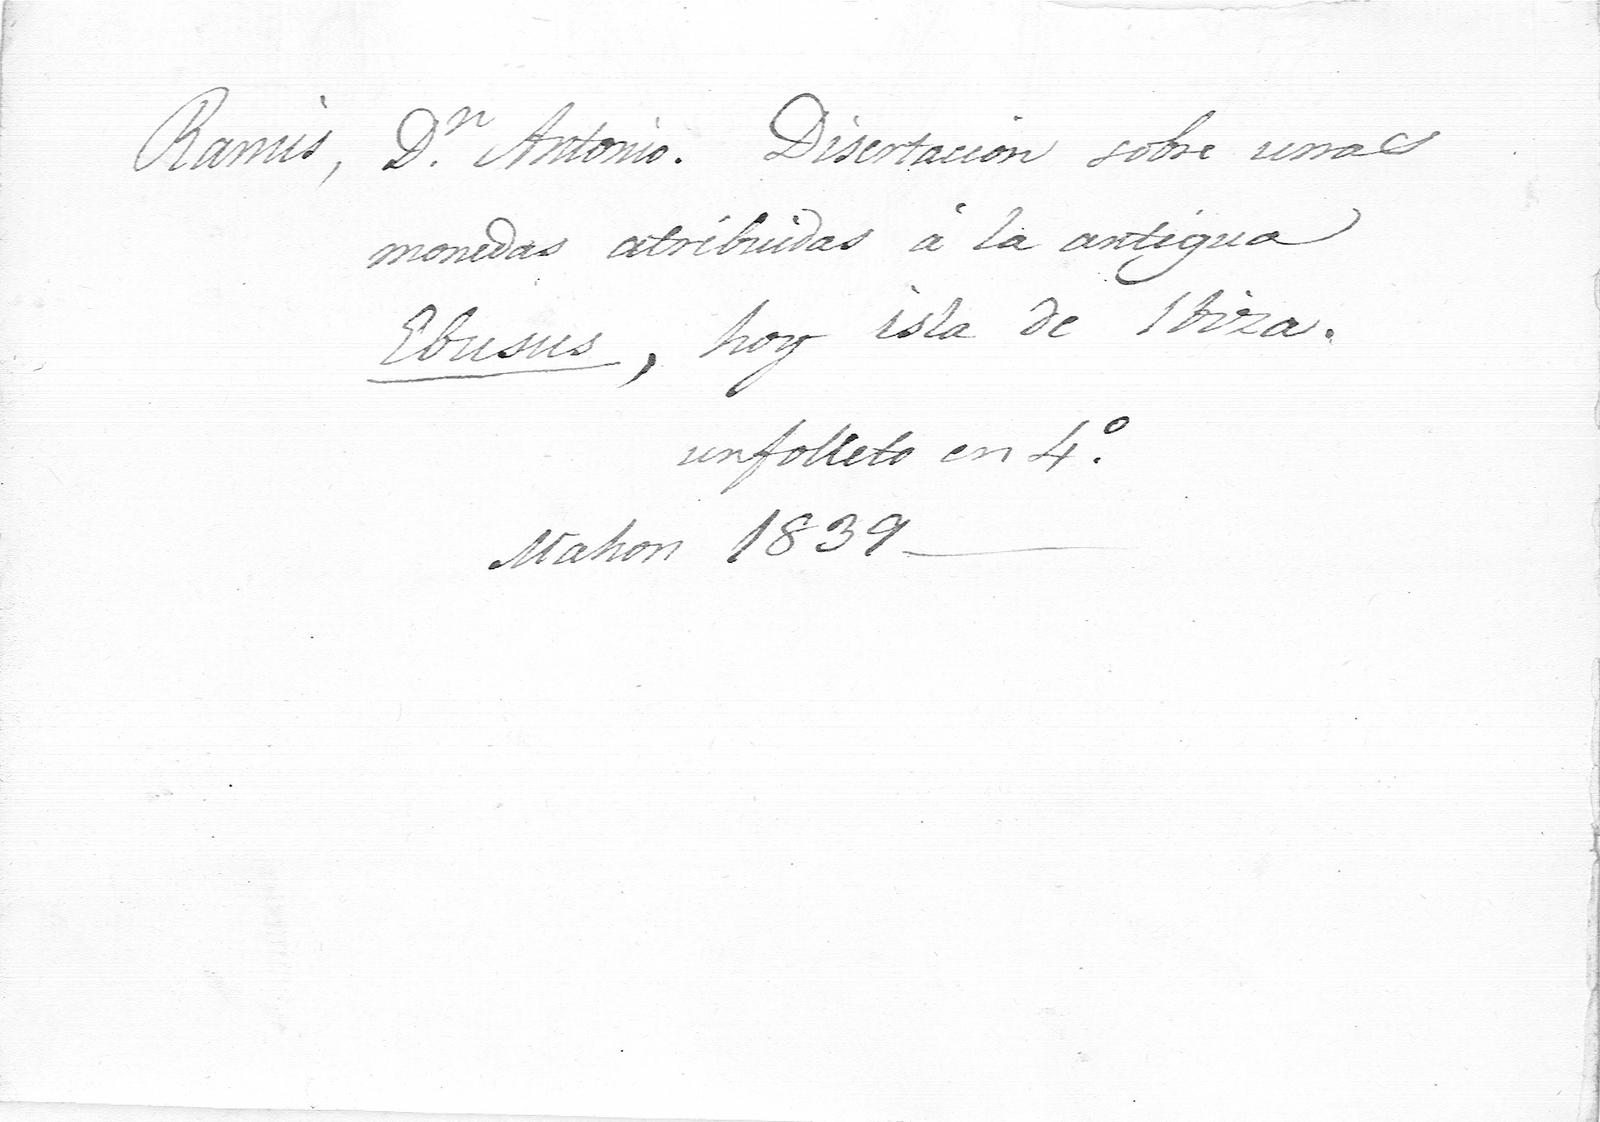 Ramis, D.ⁿ Antonio. Disertacion sobre unas
monedas atribuidas á la antigua
Ebusus, hoy isla de Ibiza.
un folleto en 4.º
Mahon 1839